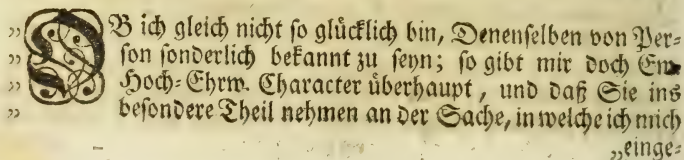 „ OB ich gleich nicht so glücklich bin, Denenselben von Per⸗
„ son sonderlich bekannt zu seyn; so gibt mir doch Ew.
„ Hoch⸗Ehrw. Character überhaupt, und daß Sie ins
„ besondere Theil nehmen an der Sache, in welche ich mich
„einge⸗